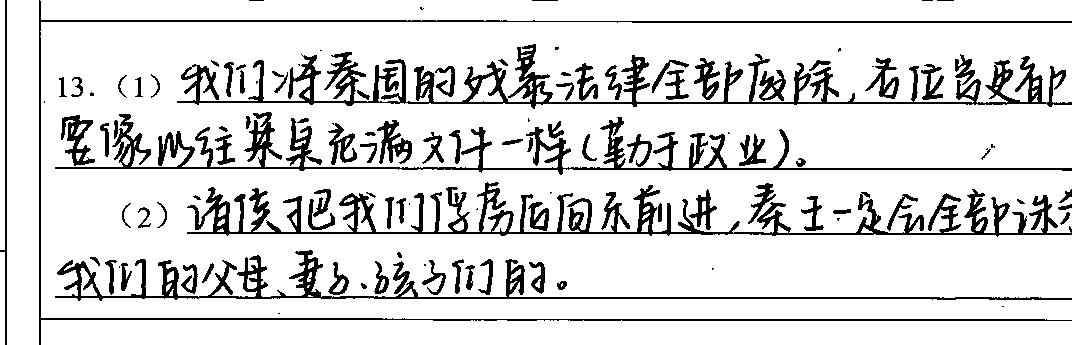 13.（1）我们将秦国的残暴法律全部废除,各位官吏都
要像以往案桌充满文件一样(勤于政业)。
（2）诸侯把我们俘虏后向东前进,秦王一定会全部诛杀
我们的父母、妻子、孩子们的。